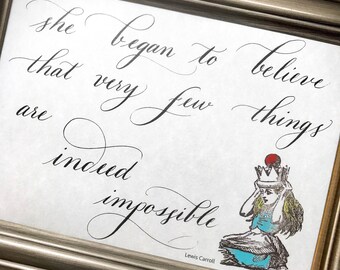 she began to believe
that very few things
are
indeed
impossible
Lewis Carroll